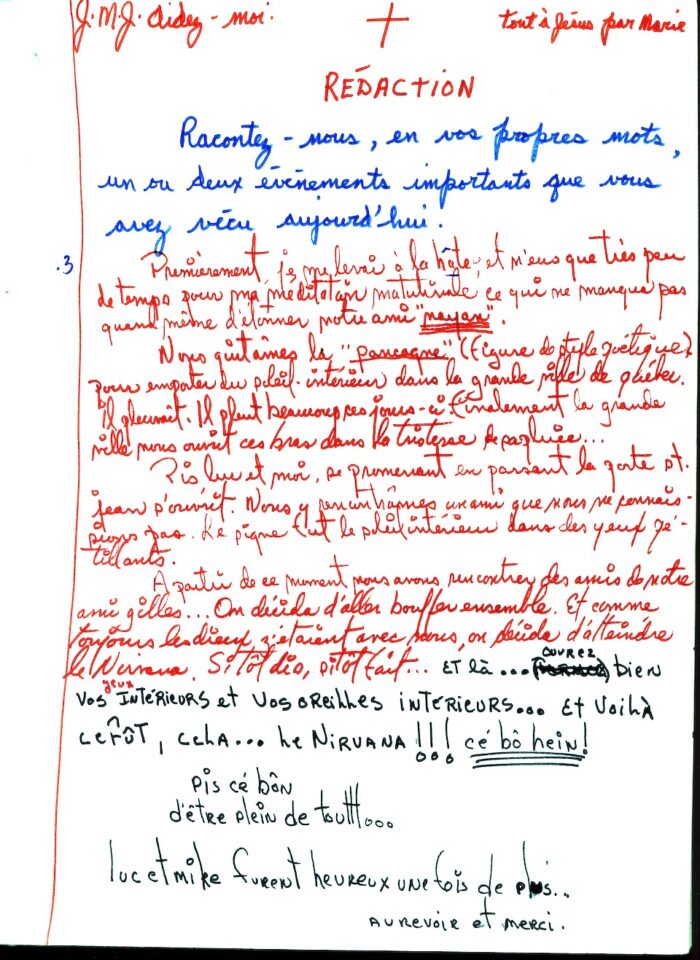 J.M.J. Aidez-moi. tout à Jésus par Marie
RÉDACTION
Racontez-nous, en vos propres mots,
un ou deux événements importants que vous
avez vécu aujourd'hui.
.3 Premièrement, je me levai à la hâte, et n'eus que très peu
de temps pour ma méditation matutinale, ce qui ne manqua pas
quand même d'étonner notre ami "nayan".
Nous quitâmes la "pancagne" (figure de style poétique)
pour emporter du soleil intérieur dans la grande ville de québec.
Il pleuvait. Il pleut beaucoup ces jours-ci. Finalement la grande
ville nous ouvrit ces bras dans la tristesse de sa pluie...
Pis luc et moi, se promenant en passant la porte st.
jean s'ouvrit. Nous y rencontrâmes un ami que nous ne connais-
sions pas. Le signe fut le soleil intérieur dans des yeux pé-
tillants.
À partir de ce moment nous avons rencontrer des amis de notre
ami gilles... On décida d'aller bouffer ensemble. Et comme
toujours les dieux étaient avec nous, on décida d'atteindre
le Nirvana. Sitôt dis, sitôt fait... ET là... OUVREZ bien
vos yeux INTÉRIEURS et vos oreilles INTERIEURS... ET voilà
ce fût, cela... le NIRVANA !!! cé bô hein!
pis cé bôn
d'être plein de toutt...
luc et mike furent heureux une fois de plus..
AUREVOIR et merci.